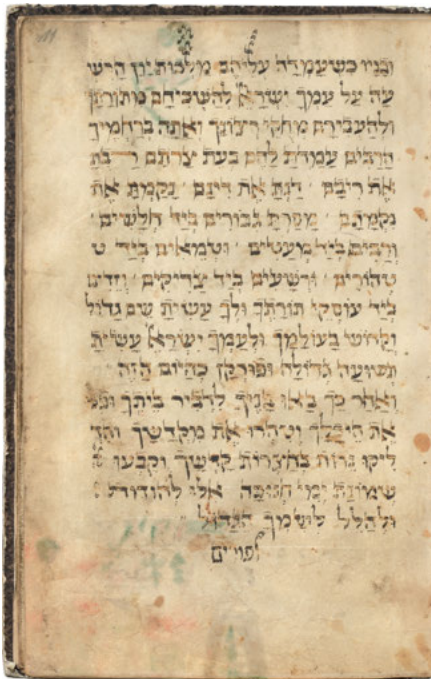 ובניו כשעמדה עליהם מלכות יון הרש
עה על עמך ישרא להשכיחם מתורתך
ולהעבירם מחקי רצונך ואתה ברחמיך
הרבים עמדת להם בעת צרתם רבת
את ריבם דנת את דינם נקמת את
נקמתם מסרת גבורים ביד חלשים
ורבים ביד מעטים וטמאים ביד ט
טהורים ורשעים ביד צדיקים וזדים
ביד עוסקי תורתך ולך עשית שם גדול
וקדוש בעולמך ולעמך ישרא עשית
תשועה גדולה ופורקן כהיום הזה
ואחר כך באו בניך לדביר ביתך ופנ
את היכלך וטיהרו את מקדשך והד
ליקו נרות בחצרות קדשך וקבעו
שמונת ימי חנוכה אלו להודות
ולהלל לשמך הגדול
לפורים